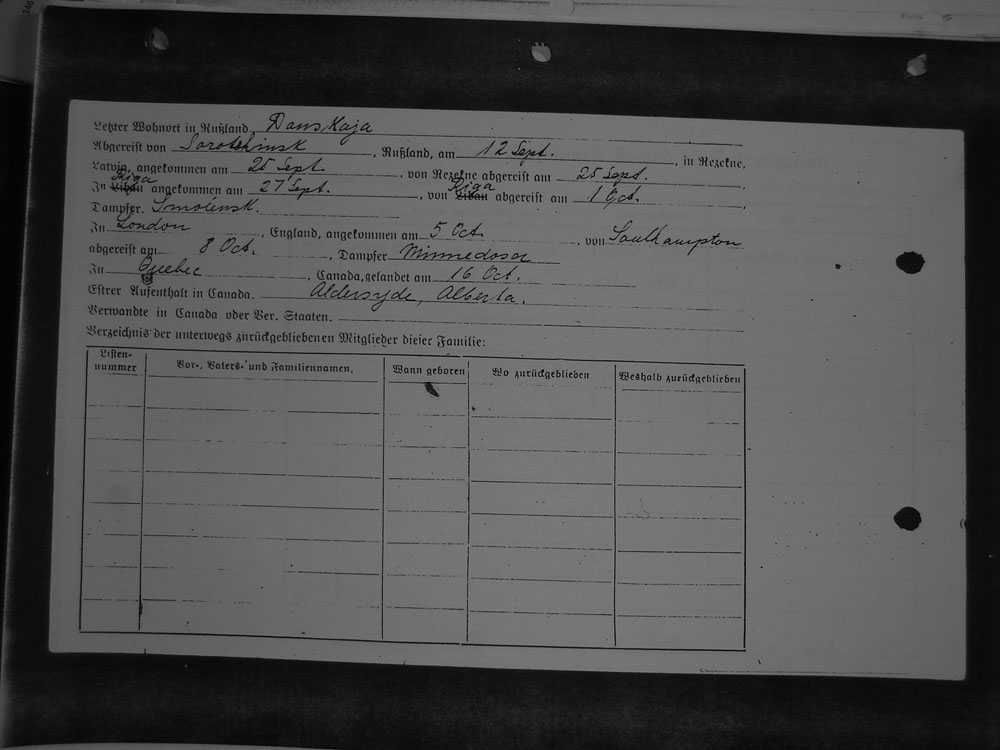 Letzter Wohnort in Rußland, Donskaja
Abgereist von Sorotshinsk, Rußland, am 12 Sept., in Rezekne,
Latvia, angekommen am 25 Sept. von Rezekne abgereist am 25 Sept.
Riga Riga
In Libau angekommen am 27 Sept., von Libau abgereist am 1 Oct.
Dampfer. Smolensk.
In London, England, angekommen am 5 Oct., von Southampton
abgereist am 8 Oct., Dampfer Minnedosa
In Quebec, Canada, gelandet am 16 Oct.
Erster Aufenthalt in Canada. Aldersyde, Alberta.
Verwandte in Canada oder Ver. Staaten.
Verzeichnis der unterwegs zurückgebliebenen Mitglieder dieser Familie:
Listen-nummer Vor-, Vaters- und Familiennamen, Wann geboren Wo zurückgeblieben Weshalb zurückgeblieben